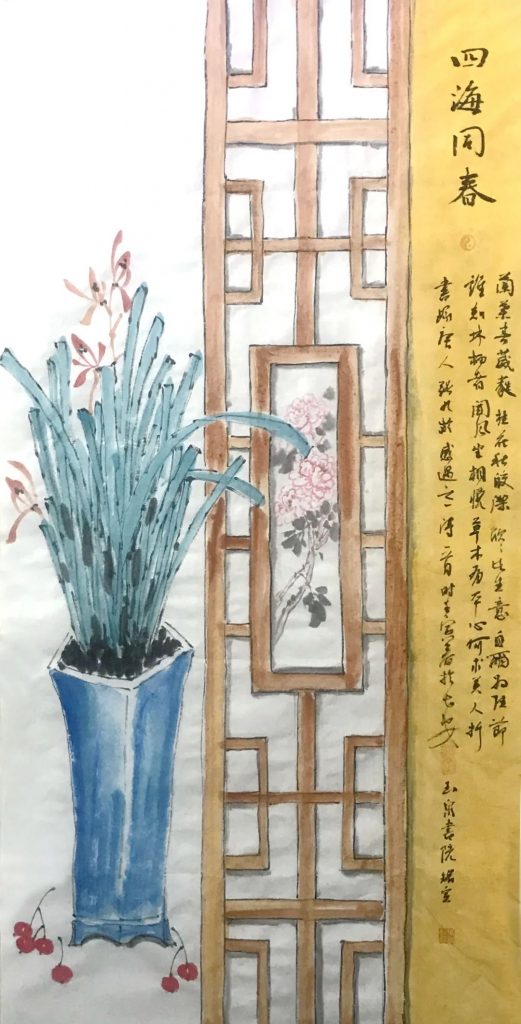 四海同春
蘭葉春葳蕤桂花秋皎潔欣〻此生意自爾為佳節
誰知林栖者聞風坐相悦草木有本心何求美人折
書唐人張九齡感遇之一詩一首時壬寅春於长安
玉泉書院